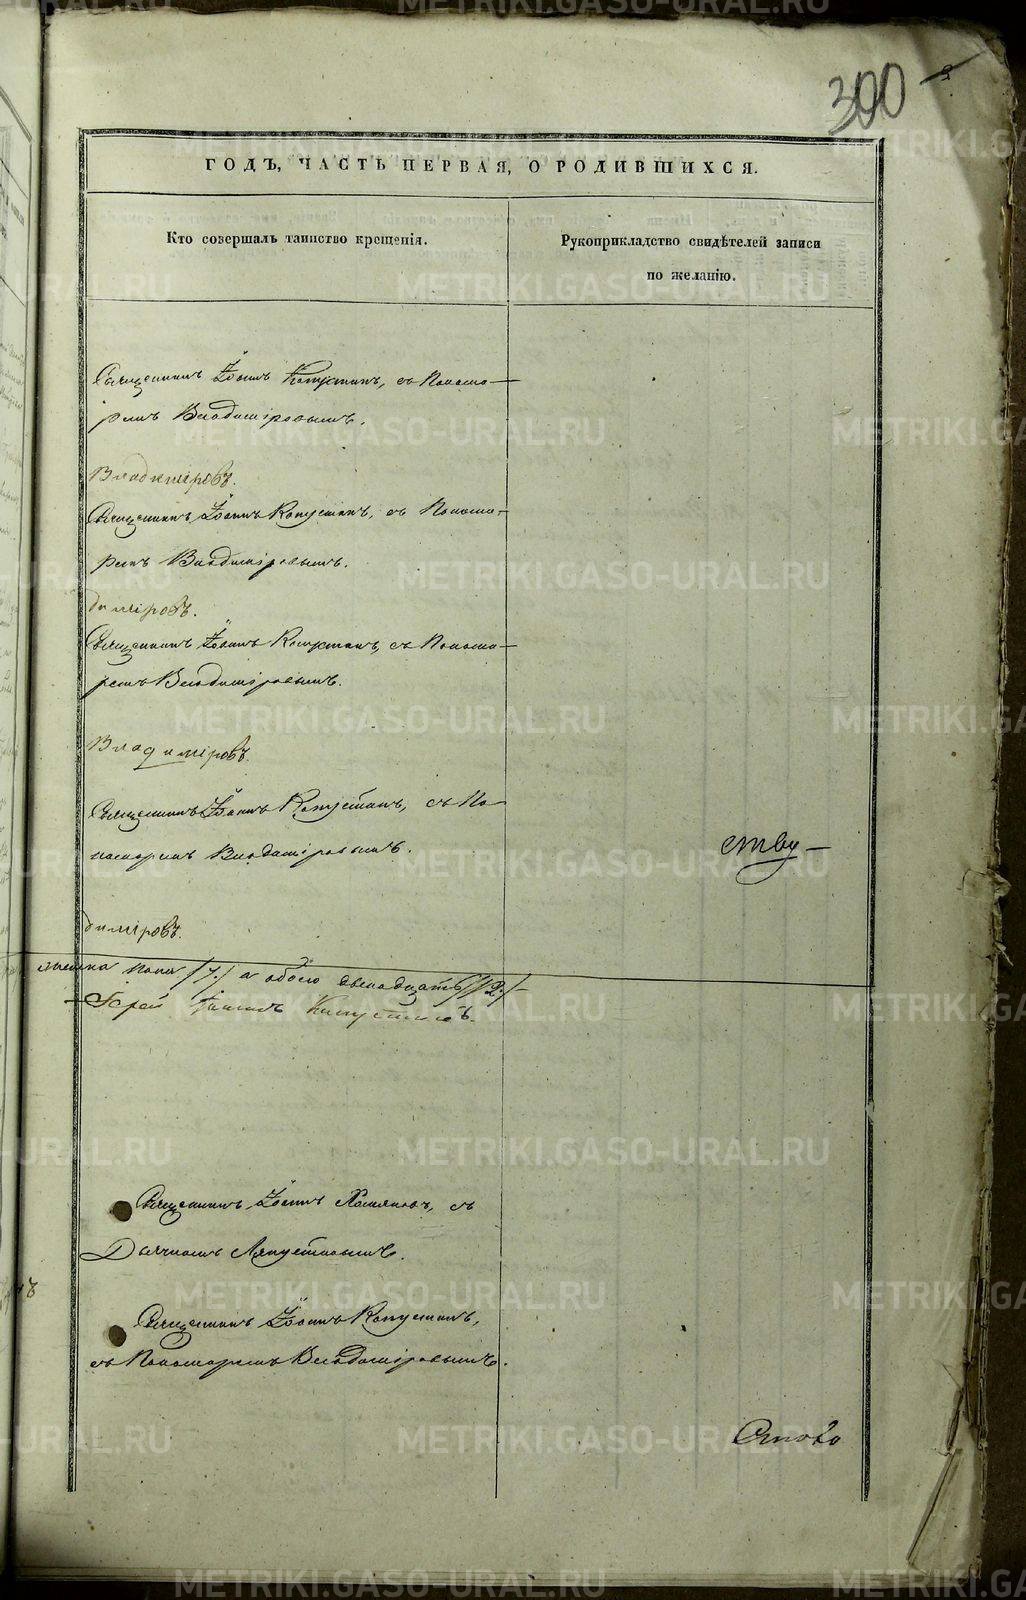 300
ГОДЪ, ЧАСТЬ ПЕРВАЯ, О РОДИВШИХСЯ.
Кто совершалъ таинство крещенія.
Рукоприкладство свидѣтелей записи
по желанію.
Священникъ Іоаннъ Капустинъ, съ Понома-
ремъ Владиміровымъ.
Владиміровъ.
Священникъ Іоаннъ Капустинъ, съ Понома-
ремъ Владиміровымъ.
диміровъ.
Священникъ Іоаннъ Капустинъ, съ Понома-
ремъ Владиміровымъ.
Владиміровъ.
Священникъ Іоаннъ Капустинъ, съ По-
номаремъ Владиміровымъ.
ству-
диміровъ.
пола /7./ а обоего двенадцать /12./
Іерей Іоаннъ Капустинъ.
Священникъ Іоаннъ Хомяковъ, съ
Дьячкомъ
Священникъ Іоаннъ Капустинъ,
съ Пономаремъ Владиміровымъ.
METRIKI.GASO-URAL.RU